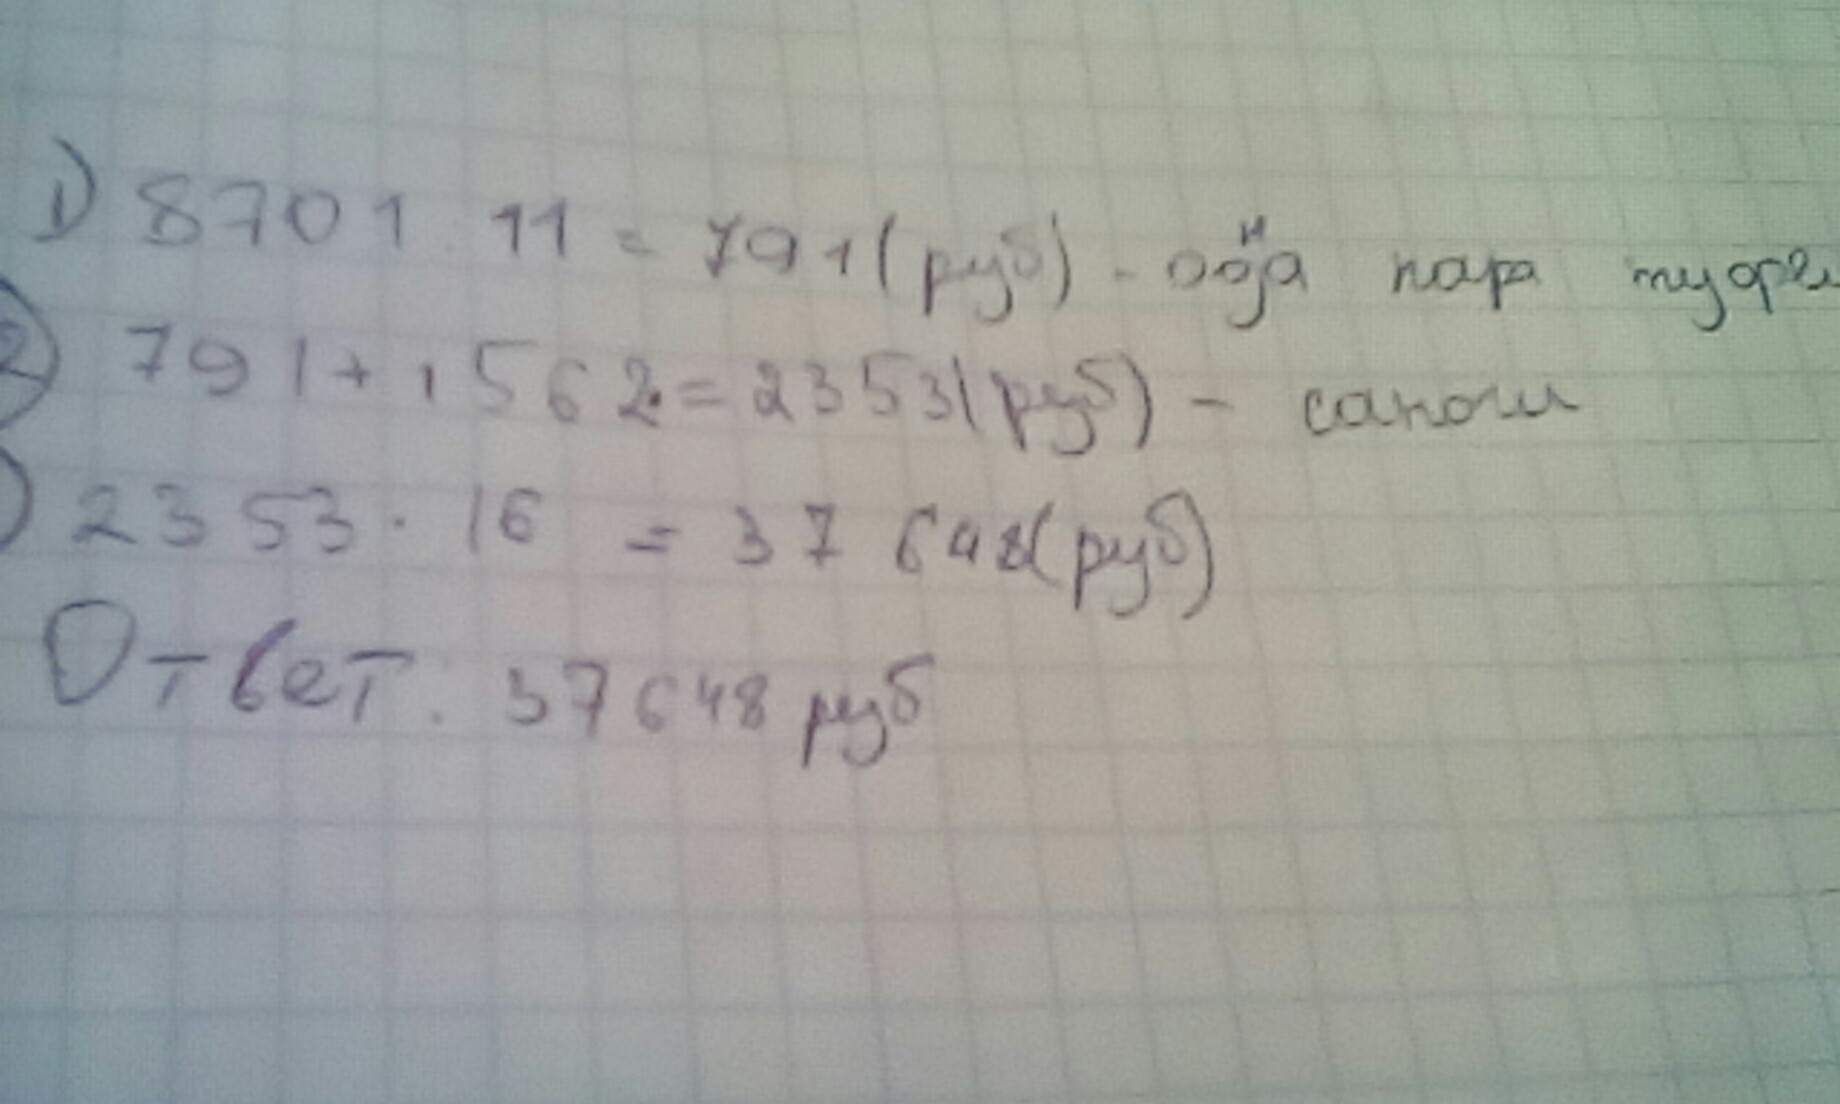 1) 8701 : 11 = 791 (руб) - пар туфли
2) 791 + 1562 = 2353 (руб) - сапоги
) 2353 · 16 = 37 648 (руб)
Ответ: 37648 руб